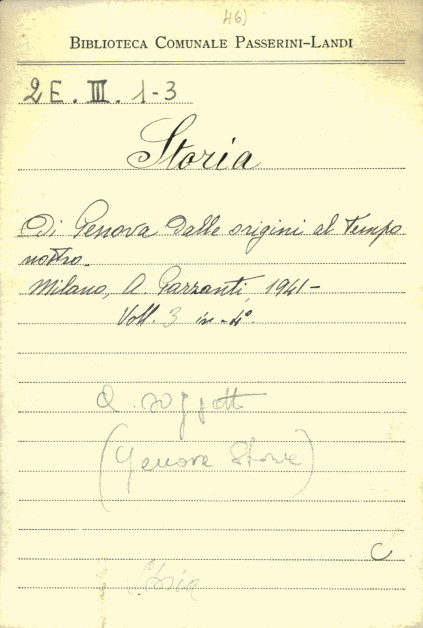 46)
BIBLIOTECA COMUNALE PASSERINI-LANDI
2E. III. 1-3
Storia
Di Genova dalle origini al tempo
nostro.
Milano, A. Garzanti, 1941-
Voll. 3 in-4°
a soggetto
(Genova Storia)
C
Storia